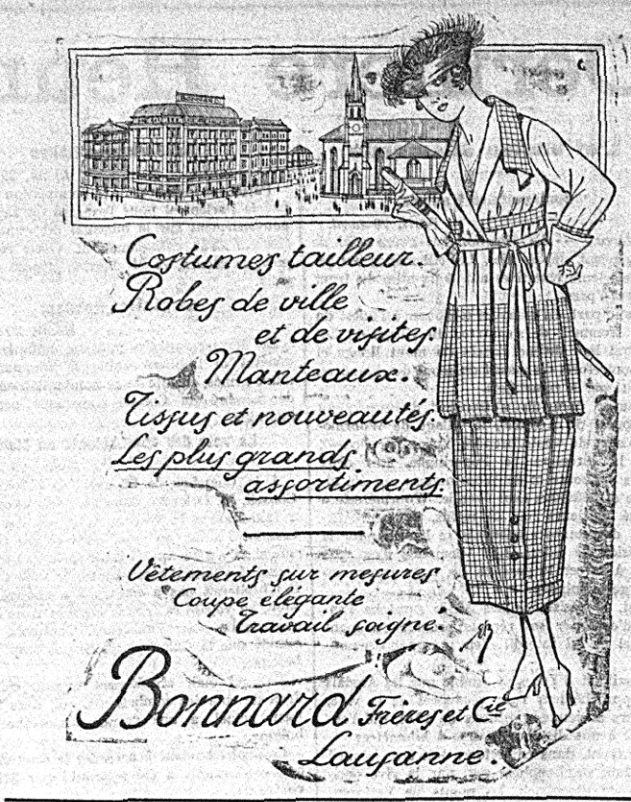 Costumes tailleur.
Robes de ville
et de visites.
Manteaux.
Tissus et nouveautés.
Les plus grands
assortiments.
Vêtements sur mesures
Coupe élégante
Travail soigné.
Bonnard Frères et Cie
Lausanne.